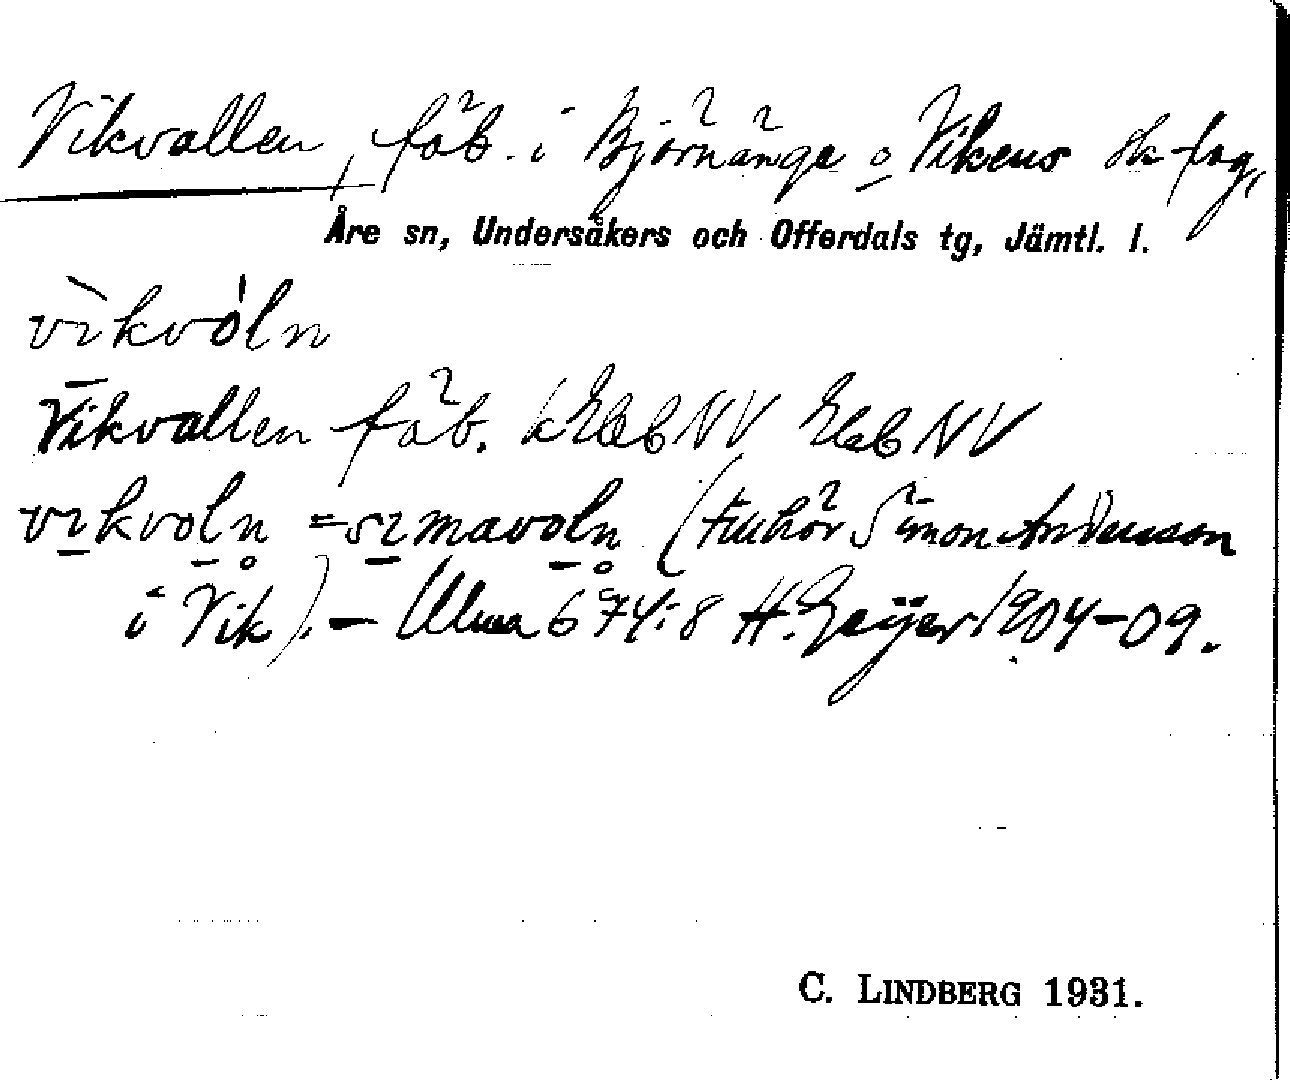 Vikvallen, fäb. i Björnänge o Vikens sk-lag,
Åre sn, Undersåkers och Offerdals tg, Jämtl. l.
vìkvòln
Vikvallen fäb. kEkbNV EkbNV
vikvoln = simavoln (tillhör Simon Andersson
i Vik). – Ulma 674:8 H. Geijer 1904–09.
C. LINDBERG 1931.